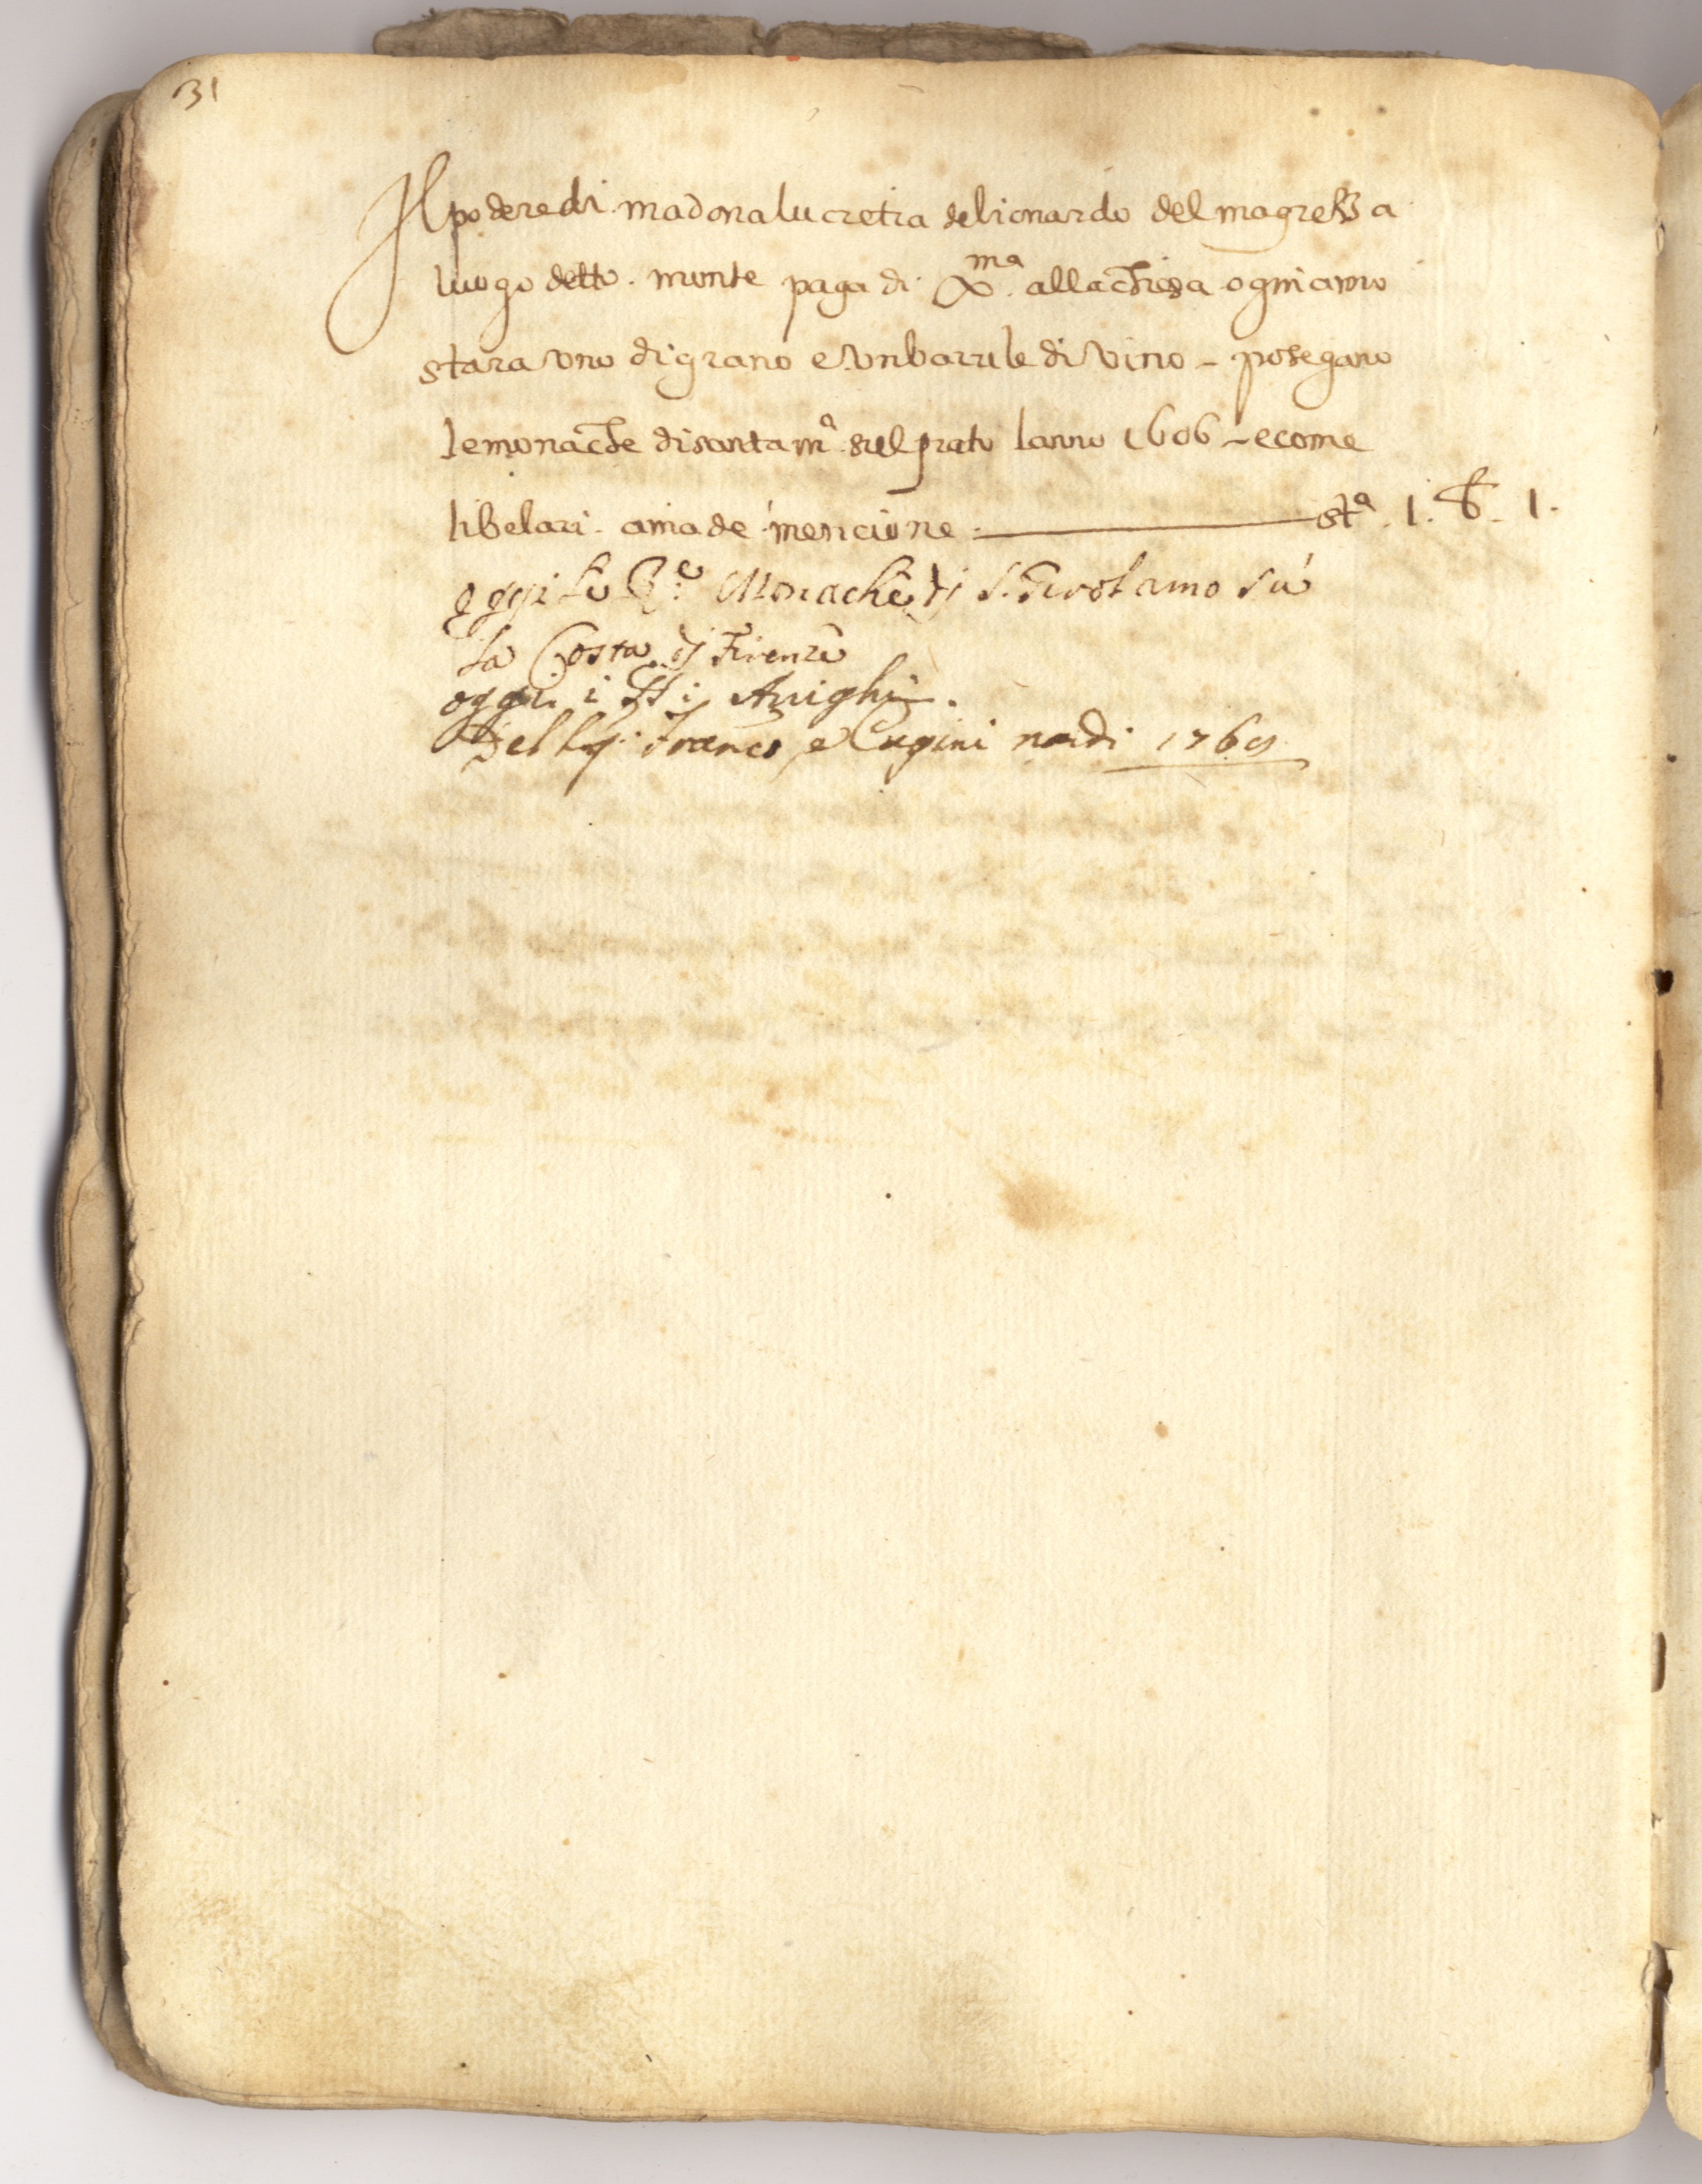 31
Il podere di madona lucretia de lionardo del magrezza
luogo detto. monte paga di Xma. alla chiesa ogni anno
stara uno di grano e un barrile di vino - posegano
le monache di santa mª. sul prato lanno 1606 - e come
libelari. ama de mencione stª. 1. b. 1.
oggi le R.e Monache di S. Girolamo sú
la Costa di Firenze
oggi i Arrighi.
Franco e Cugini nardi 1769